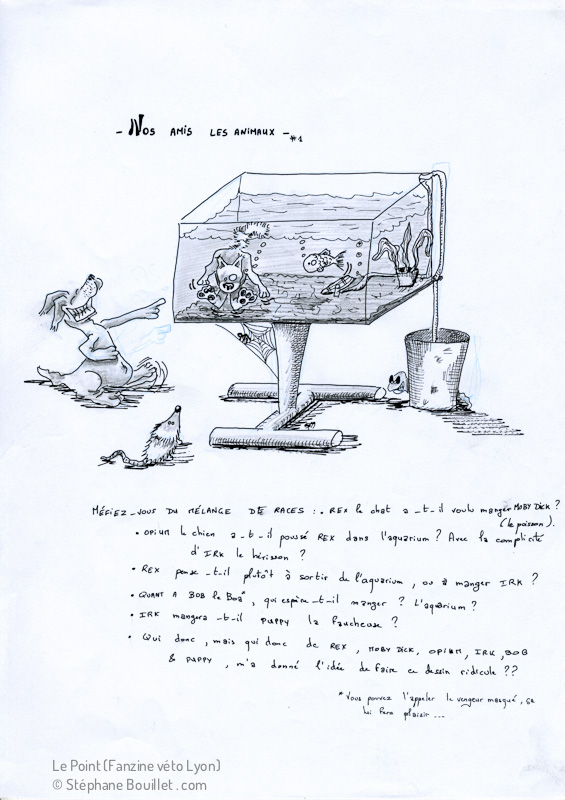 - Nos amis les animaux - #1
Méfiez-vous du mélange des races : . Rex le chat a-t-il voulu manger Moby Dick ?
(le poisson).
• Opium le chien a-t-il poussé Rex dans l'aquarium ? Avec la complicité
d'Irk le hérisson ?
• Rex pense-t-il plutôt à sortir de l'aquarium, ou à manger Irk ?
• Quant a Bob le Boa*, qui espère-t-il manger ? L'aquarium ?
• Irk mangera-t-il Puppy la faucheuse ?
• Qui donc, mais qui donc de Rex, Moby Dick, Opium, Irk, Bob
& Puppy, m'a donné l'idée de faire ce dessin ridicule ??
* Vous pouvez l'appeler le vengeur masqué, ça
lui fera plaisir...
Le Point (Fanzine véto Lyon)
© Stéphane Bouillet . com